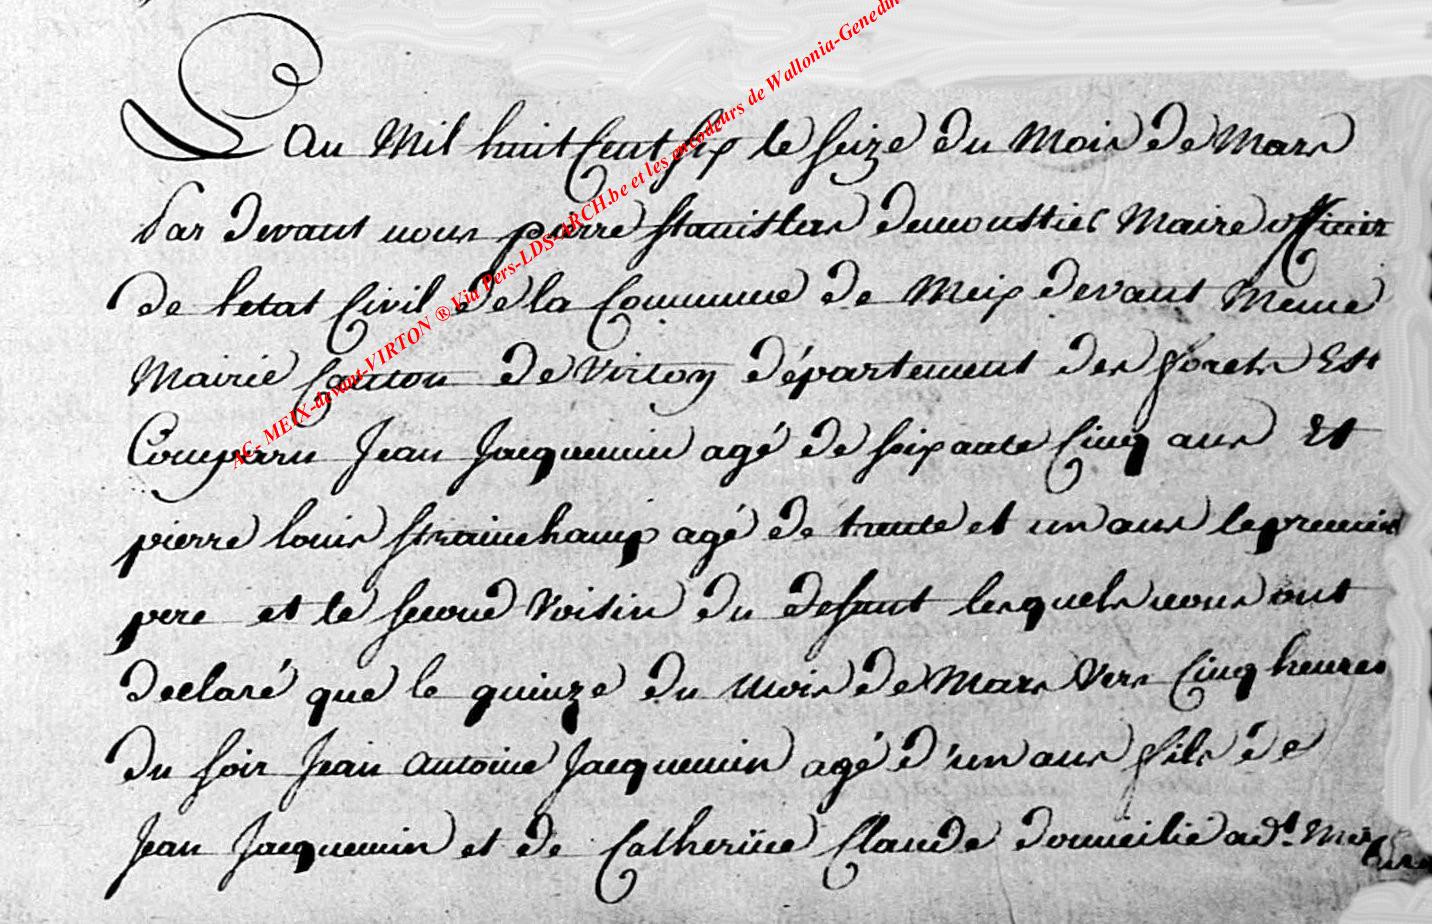 Lan Mil huit Cent six le seize du Mois de Mars
Par devant nous pierre stanislas demoustier Maire officier
de letat Civil de la Commune de Meix devant Meme
Mairie Canton de Virton département des forets Est
Comparu Jean Jacquemin agé de soixante Cinq ans Et
pierre louis strainchamp agé de trente et un ans le premier
pere et le second voisin du defunt lesquels nous ont
declaré que le quinze du mois de Mars Vers Cinq heures
du soir Jean antoine Jacquemin agé d'un ans fils de
Jean Jacquemin et de Catherine Claude domeilié adt. Meix
AC- MEIX-devant-VIRTON ® Via Pers-LDS-ARCH.be et les encodeurs de Wallonia-Genedin